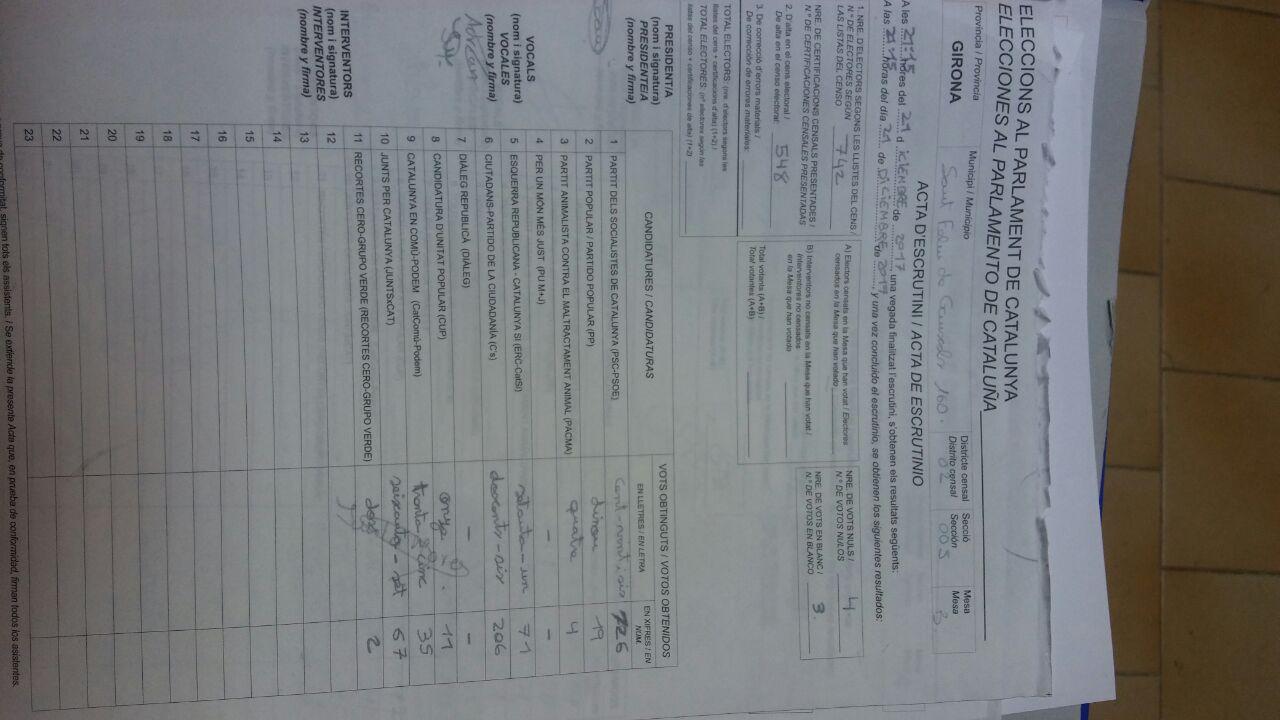 ELECCIONS AL PARLAMENT DE CATALUNYA
ELECCIONES AL PARLAMENTO DE CATALUÑA
Província / Provincia
GIRONA
Municipi / Municipio
Sant Feliu de Guíxols 160.
Districte censal
Distrito censal
02
Secció
Sección
003
Mesa
Mesa
B
ACTA D'ESCRUTINI / ACTA DE ESCRUTINIO
A les 21:15 hores del 21 d de 2017, una vegada finalitzat l'escrutini, s'obtenen els resultats següents:
A las 21:15 horas del día 21 de DICIEMBRE de 2017, y una vez concluido el escrutinio, se obtienen los siguientes resultados:
1. NRE. D'ELECTORS SEGONS LES LLISTES DEL CENS /
Nº DE ELECTORES SEGÚN
LAS LISTAS DEL CENSO 742
NRE. DE CERTIFICACIONS CENSALS PRESENTADES /
Nº DE CERTIFICACIONES CENSALES PRESENTADAS
2. D'alta en el cens electoral /
De alta en el censo electoral: 548
3. De correcció d'errors materials /
De corrección de errores materiales:
TOTAL ELECTORS: (nre. d'electors segons les
llistes del cens + certificacions d'alta) (1+2) /
TOTAL ELECTORES: (nº electores según las
listas del censo + certificaciones de alta) (1+2)
A) Electors censats en la Mesa que han votat / Electores
censados en la Mesa que han votado
B) Interventors no censats en la Mesa que han votat /
Interventores no censados
en la Mesa que han votado
Total votants (A+B) /
Total votantes (A+B)
NRE. DE VOTS NULS /
Nº DE VOTOS NULOS 4
NRE. DE VOTS EN BLANC /
Nº DE VOTOS EN BLANCO 3.
PRESIDENT/A
(nom i signatura)
PRESIDENTE/A
(nombre y firma)
VOCALS
(nom i signatura)
VOCALES
(nombre y firma)
Adrian
INTERVENTORS
(nom i signatura)
INTERVENTORES
(nombre y firma)
CANDIDATURES / CANDIDATURAS
VOTS OBTINGUTS / VOTOS OBTENIDOS
EN LLETRES / EN LETRA
EN XIFRES / EN NÚM.
1 PARTIT DELS SOCIALISTES DE CATALUNYA (PSC-PSOE) cent-vint-i-sis 126
2 PARTIT POPULAR / PARTIDO POPULAR (PP) dinou 19
3 PARTIT ANIMALISTA CONTRA EL MALTRACTAMENT ANIMAL (PACMA) quatre 4
4 PER UN MÓN MÉS JUST (PU M+J) - -
5 ESQUERRA REPUBLICANA - CATALUNYA SI (ERC-CatSI) setanta-un 71
6 CIUTADANS-PARTIDO DE LA CIUDADANÍA (C's) doscents-sis 206
7 DIÀLEG REPUBLICÀ (DIÀLEG) - -
8 CANDIDATURA D'UNITAT POPULAR (CUP) onze 11
9 CATALUNYA EN COMÚ-PODEM (CatComú-Podem) trenta-cinc 35
10 JUNTS PER CATALUNYA (JUNTSxCAT) seixanta-set 67
11 RECORTES CERO-GRUPO VERDE (RECORTES CERO-GRUPO VERDE) dos 2
12
13
14
15
16
17
18
19
20
21
22
23
de conformitat, signen tots els assistents. / Se extiende la presente Acta que, en prueba de conformidad, firman todos los asistentes.